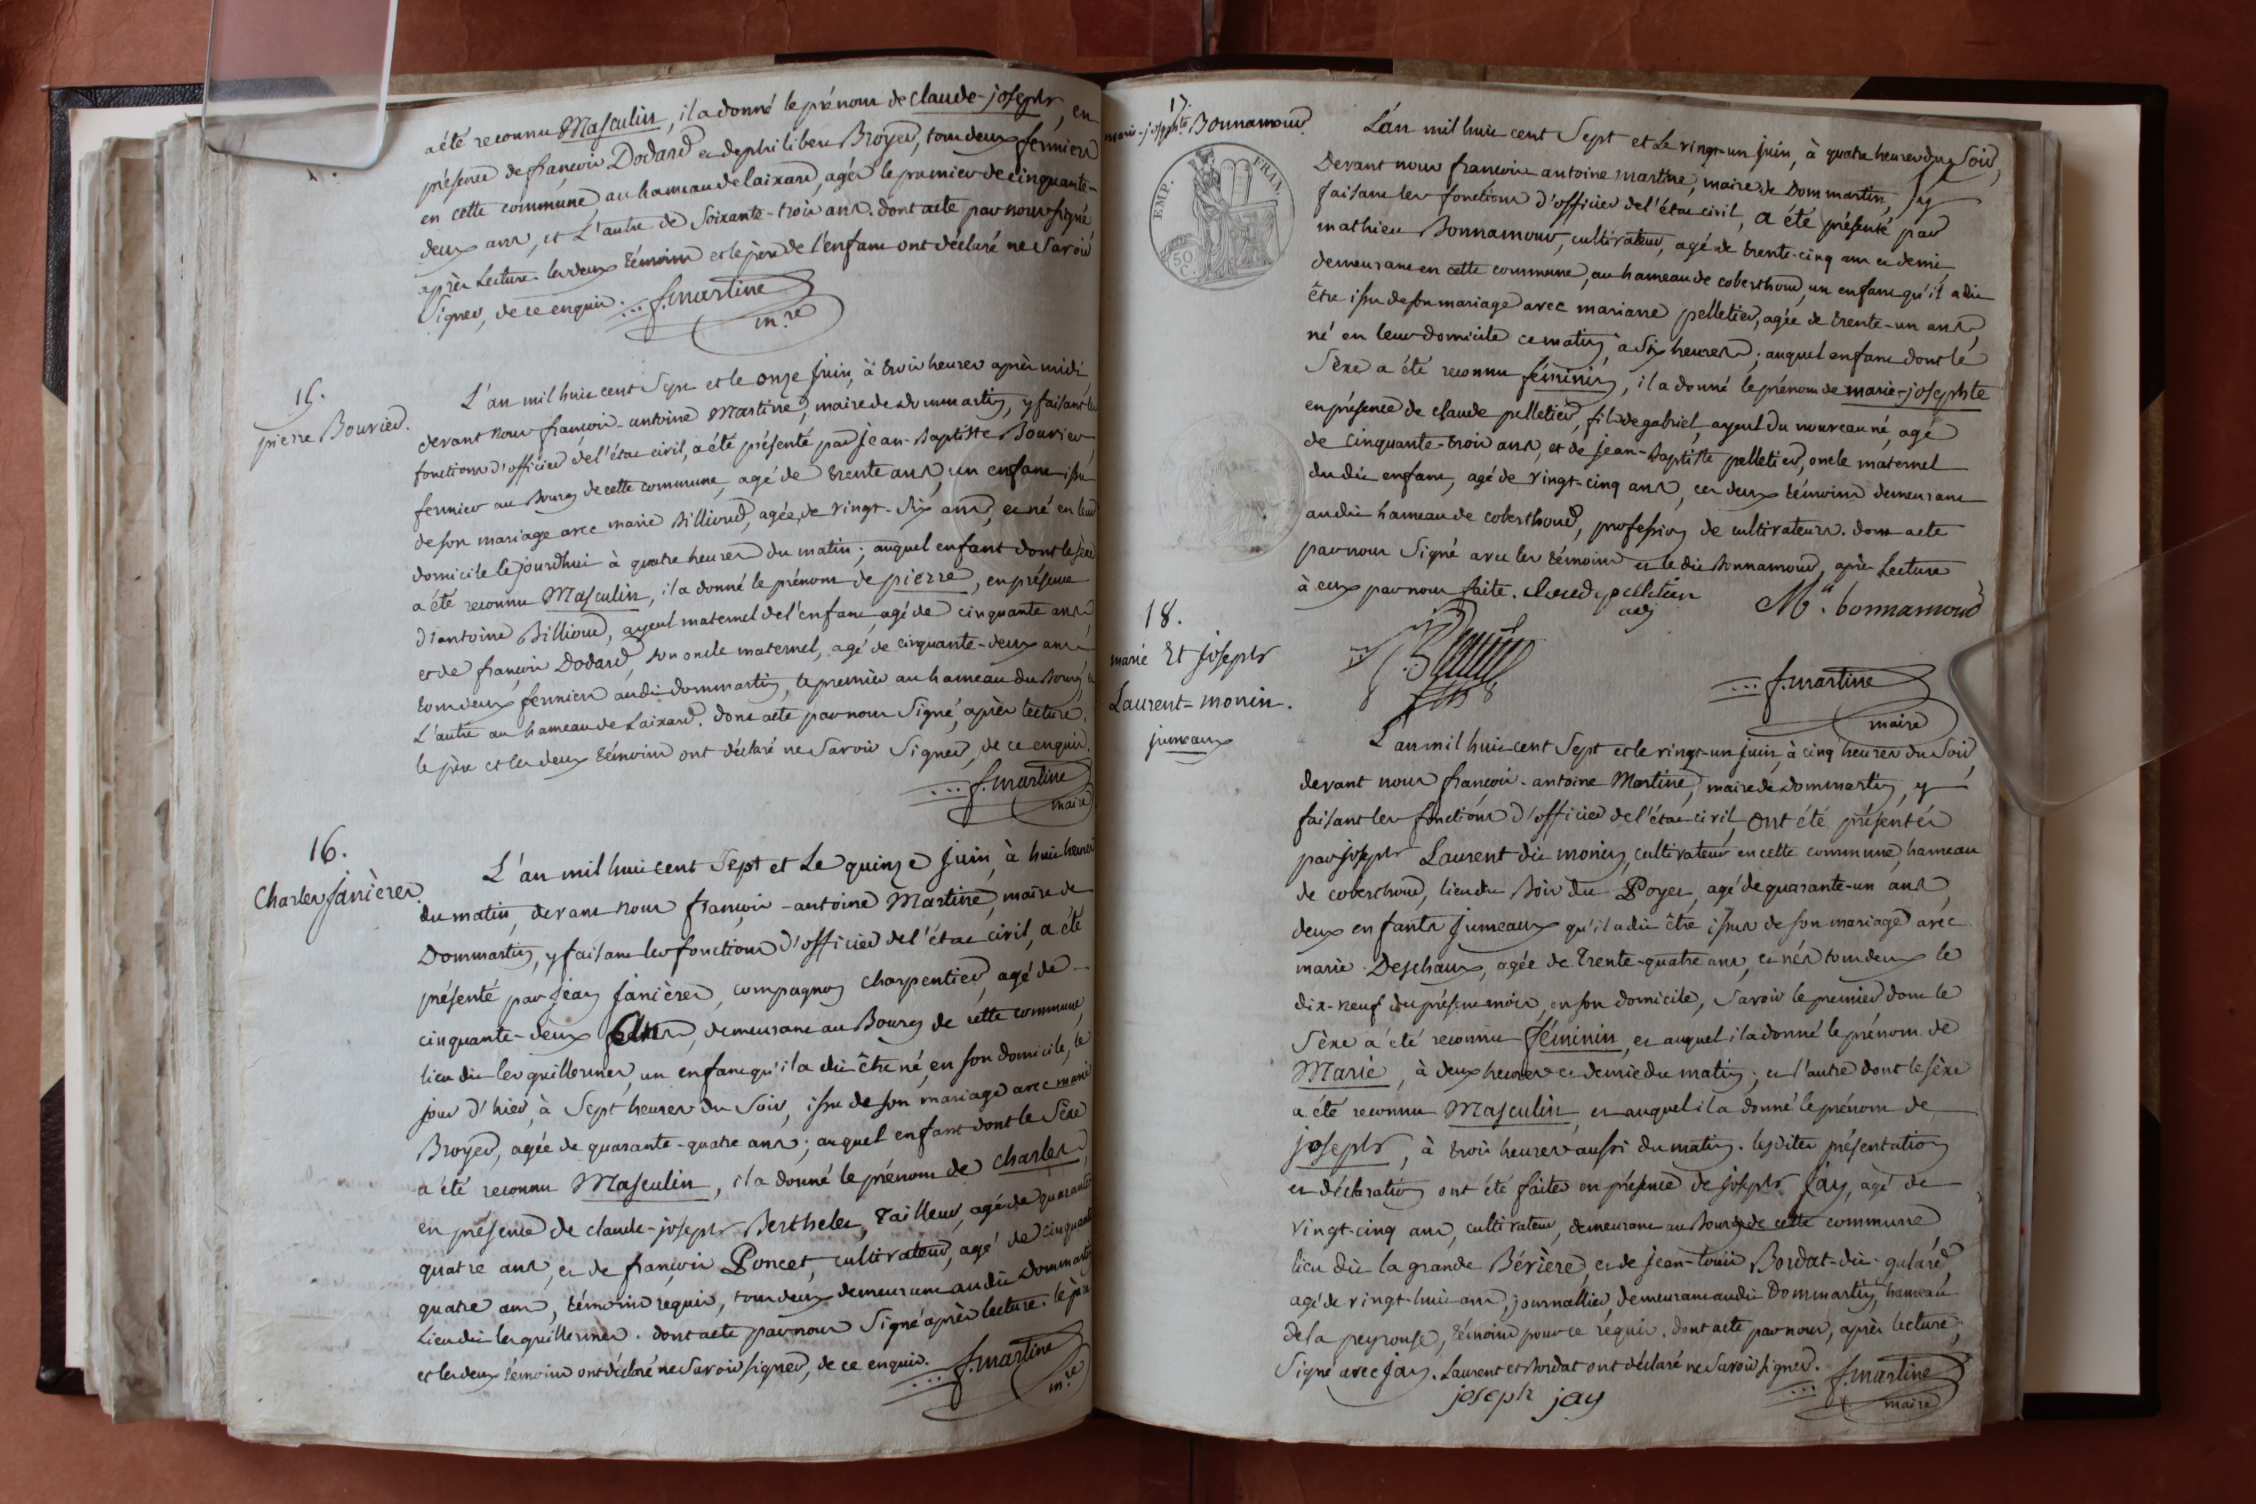 a été reconnu Masculin, il a donné le prénom de claude-joseph, en
présence de françois Dodard et de philibert Broyer, tous deux fermiers
en cette commune au hameau de laixard, agés le premier de cinquante-
deux ans, et L'autre de Soixante-trois ans. dont acte par nous signé
après Lecture. les deux témoins et le père de l'enfant ont déclaré ne Savoir
Signer, de ce enquis. f. martine
m.re
15.
pierre Bouvier.
L'an mil huit cent Sept et le onze juin, à trois heures après midi
devant nous françois-antoine Martine, maire de dommartin, y faisant les
fonctions d'officier de l'état civil, a été présenté par jean-Baptiste Bouvier
fermier au Bourg de cette commune, agé de trente ans, un enfant issu
de son mariage avec marie Billioud, agée de vingt-six ans, et né en leur
domicile le jourdhui à quatre heures du matin; auquel enfant dont le sèxe
a été reconnu Masculin, il a donné le prénom de pierre, en présence
d'antoine Billioud, ayeul maternel de l'enfant, agé de cinquante ans
et de françois Dodard, son oncle maternel, agé de cinquante-deux ans
tous deux fermiers audit dommartin, le premier au hameau du Bourg, et
L'autre au hameau de Laixard. dont acte par nous Signé, après lecture.
le père et les deux témoins ont déclaré ne Savoir Signer, de ce enquis.
f. martine
maire
16.
Charles janières.
L'an mil huit cent Sept et Le quinze juin, à huit heures
du matin, devant nous françois-antoine Martine, maire de
Dommartin, y faisant les fonctions d'officier de l'état civil, a été
présenté par jean janières, compagnon charpentier, agé de
cinquante-deux ans, demeurant au Bourg de cette commune,
lieu dit les guillermes, un enfant qu'il a dit être né, en son domicile, le
jour d'hier, à Sept heures du Soir, issu de son mariage avec marie
Broyer, agée de quarante-quatre ans; auquel enfant dont le Sèxe
a été reconnu Masculin, il a donné le prénom de charles,
en présence de claude-joseph Berthelet, tailleur, agé de quarante
quatre ans, et de françois Poncet, cultivateur, agé de cinquante
quatre ans, témoins requis, tous deux demeurant audit Dommartin
Lieu dit les guillermes. dont acte par nous Signé après lecture. le père
et les deux témoins ont déclaré ne Savoir signer, de ce enquis. f. martine
m.re
17.
marie-josephte Bonnamour.
EMP. FRAN.
50 C.
L'an mil huit cent Sept et Le vingt-un juin, à quatre heures du Soir,
Devant nous françois antoine martine, maire de Dommartin, y
faisant les fonctions d'officier de l'état civil, a été présenté par
mathieu Bonnamour, cultivateur, agé de trente-cinq ans et demi
demeurant en cette commune, au hameau de coberthoud, un enfant qu'il a dit
être issu de son mariage avec marianne pelletier, agée de trente-un ans,
né en leur domicile ce matin, à Six heures; auquel enfant dont le
Sèxe a été reconnu féminin, il a donné le prénom de marie-josephte
en présence de claude pelletier, fils de gabriel, ayeul du nouveau né, agé
de cinquante-trois ans, et de jean-Baptiste pelletier, oncle maternel
du dit enfant, agé de vingt-cinq ans, ces deux témoins demeurant
audit hameau de coberthoud, profession de cultivateurs. dont acte
par nous Signé avec les témoins et le dit Bonnamour, après Lecture
à eux par nous faite. Claude pelletier
adj
M.u bonnamour
f. martine
maire
18.
marie Et joseph
Laurent-monin.
jumeaux
L'an mil huit cent Sept et le vingt-un juin, à cinq heures du Soir,
devant nous françois-antoine Martine, maire de Dommartin, y
faisant les fonctions d'officier de l'état civil, ont été présentés
par joseph Laurent dit monin, cultivateur en cette commune, hameau
de coberthoud, lieu dit Bois du Poyet, agé de quarante-un ans,
deux enfants jumeaux qu'il a dit être issus de son mariage avec
marie Deschaux, agée de trente-quatre ans, et nés tous deux le
dix-neuf du présent mois, en son domicile, Savoir le premier dont le
Sèxe a été reconnu féminin, et auquel il a donné le prénom de
Marie, à deux heures et demie du matin; et l'autre dont le sèxe
a été reconnu Masculin, et auquel il a donné le prénom de
joseph, à trois heures aussi du matin. lesdites présentation
et déclaration ont été faites en présence de joseph jay, agé de
vingt-cinq ans, cultivateur, demeurant au Bourg de cette commune
lieu dit la grande Bévière, et de jean-louis Bordat-dit-
agé de vingt-huit ans, journallier, demeurant audit Dommartin, hameau
de la peyrouse, témoins pour ce requis. dont acte par nous, après lecture,
Signé avec jay. Laurent et Bordat ont déclaré ne Savoir signer. f. martine
maire
joseph jay